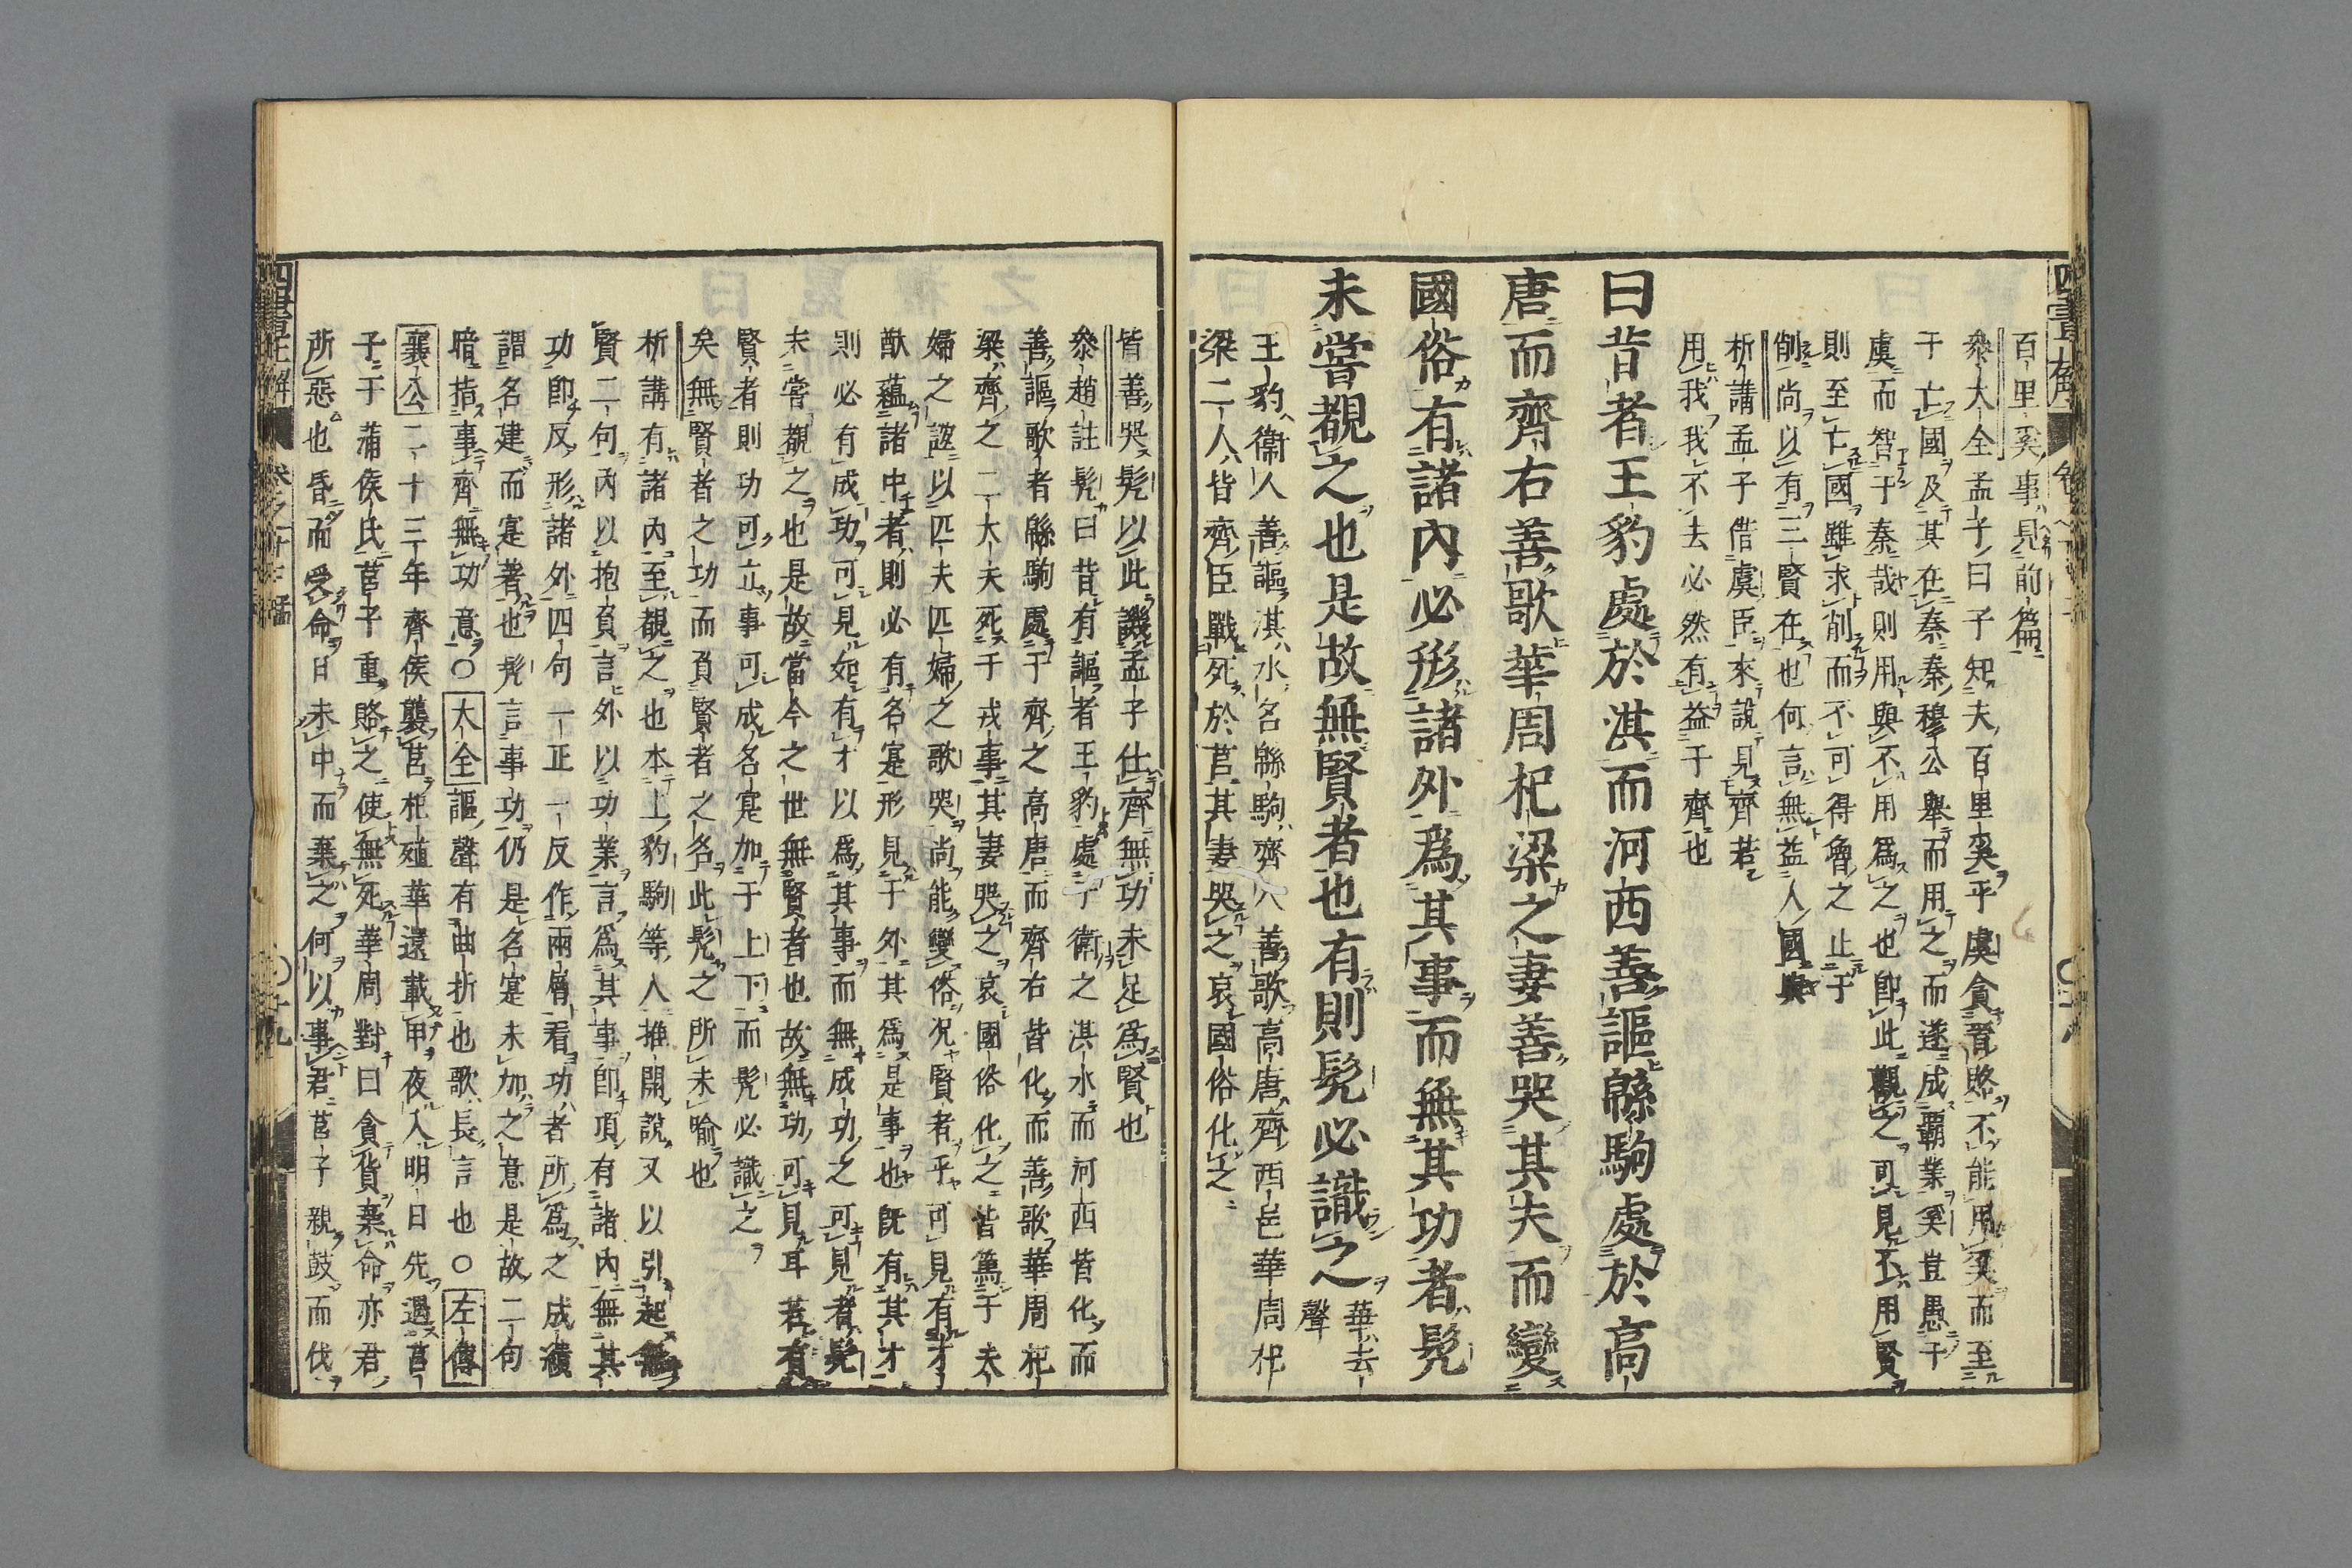 百里奚事見前篇
參大全孟子曰子知夫百里奚乎虞貪晉賂不能用奚而至
于亡國及其在秦秦穆公舉而用之而遂成霸業奚豈愚于
虞而智于秦哉則用與不用爲之也卽此觀之可見不用賢
則至亡國雖求削而不可得魯之止于
削尚以有三賢在也何言無益人國與
析講孟子借虞臣來說見齊若
用我我不去必然有益于齊也
曰昔者王豹處於淇而河西善謳緜駒處於高
唐而齊右善歌華周杞梁之妻善哭其夫而變
國俗有諸內必形諸外爲其事而無其功者髡
未嘗覩之也是故無賢者也有則髡必識之
華去
聲
王豹衞人善謳淇水名緜駒齊人善歌高唐齊西邑華周杞
梁二人皆齊臣戰死於莒其妻哭之哀國俗化之
皆善哭髡以此譏孟子仕齊無功未足爲賢也
參趙註髡曰昔有謳者王豹處于衞之淇水而河西皆化而
善謳歌者緜駒處于齊之高唐而齊右皆化而善歌華周杞
梁齊之二大夫死于戎事其妻哭之哀國俗化之皆篤于夫
婦之誼以匹夫匹婦之歌哭尚能變俗況賢者乎可見有才
猷蘊諸中者則必有名寔形見于外其爲是事也旣有其才
則必有成功可見如有才以爲其事而無成功之可見者髡
未嘗覩之也是故當今之世無賢者也故無功可見耳若有
賢者則功可立事可成名寔加于上下而髡必識之
矣無賢者之功而負賢者之名此髡之所未喻也
析講有諸內至覩之也本上豹駒等人推開說又以引起無
賢二句內以抱負言外以功業言爲其事卽項有諸內無其
功卽反形諸外四句一正一反作兩層看功者所爲之成績
謂名建而寔著也髡言事功仍是名寔未加之意是故二句
暗指事齊無功意○大全謳聲有曲折也歌長言也○左傳
襄公二十三年齊侯襲莒杞殖華還載甲夜入明日先遇莒
子于蒲侯氏莒子重賂之使無死華周對曰貪貨棄命亦君
所惡也昏而受命日未中而棄之何以事君莒子親鼓而伐